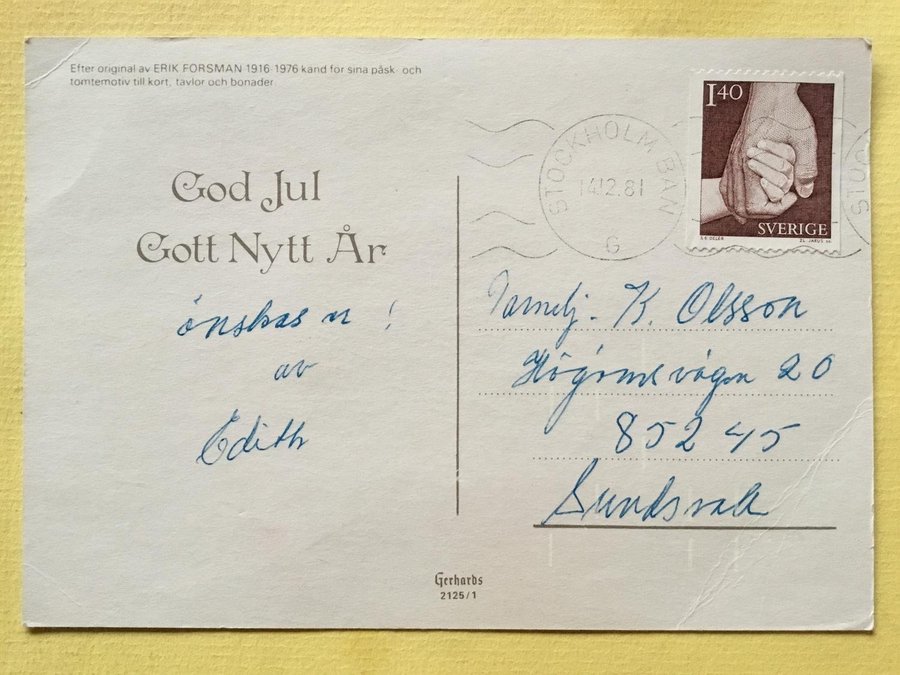 Efter original av ERIK FORSMAN 1916-1976 känd för sina påsk- och
tomtemotiv till kort, tavlor och bonader
God Jul
Gott Nytt År
önskas er!
av
Edith
STOCKHOLM BAN
14.12.81
G
STO
1 40
SVERIGE
Familj. K. Olsson
vägen 20
852 45
Sundsvall
Gerhards
2125/1